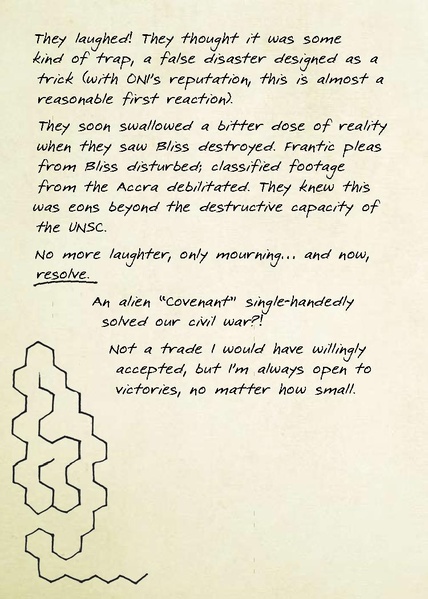 They laughed! They thought it was some
kind of trap, a false disaster designed as a
trick (with ONI's reputation, this is almost a
reasonable first reaction).
They soon swallowed a bitter dose of reality
when they saw Bliss destroyed. Frantic pleas
from Bliss disturbed; classified footage
from the Accra debilitated. They knew this
was eons beyond the destructive capacity of
the UNSC.
No more laughter, only mourning... and now,
resolve.
An alien "Covenant" single-handedly
solved our civil war?!
Not a trade I would have willingly
accepted, but I'm always open to
victories, no matter how small.